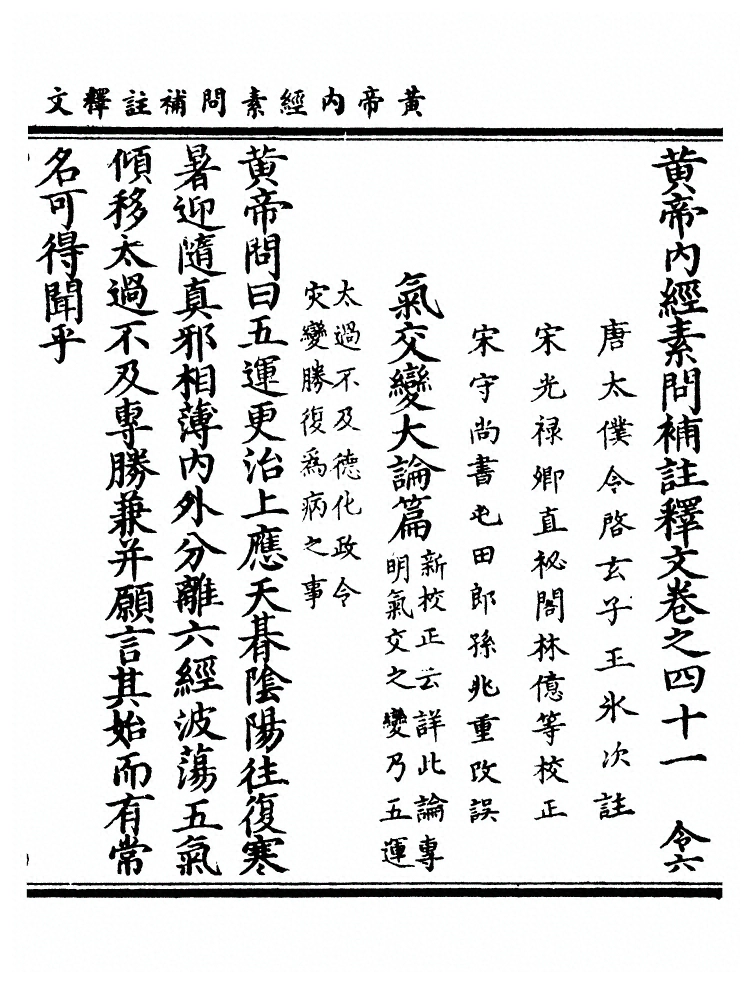 黄帝内經素問補註釋文
黄帝内經素問補註釋文卷之四十一　令六
唐太僕令啓玄子王氷次註
宋光禄卿直祕閣林億等校正
宋守尚書屯田郎孫兆重改誤
氣交變大論篇
新校正云詳此論專
明氣交之變乃五運
太過不及德化政令
灾變勝復爲病之事
黄帝問曰五運更治上應天朞陰陽往復寒
暑迎隨真邪相薄内外分離六經波蕩五氣
傾移太過不及專勝兼并願言其始而有常
名可得聞乎